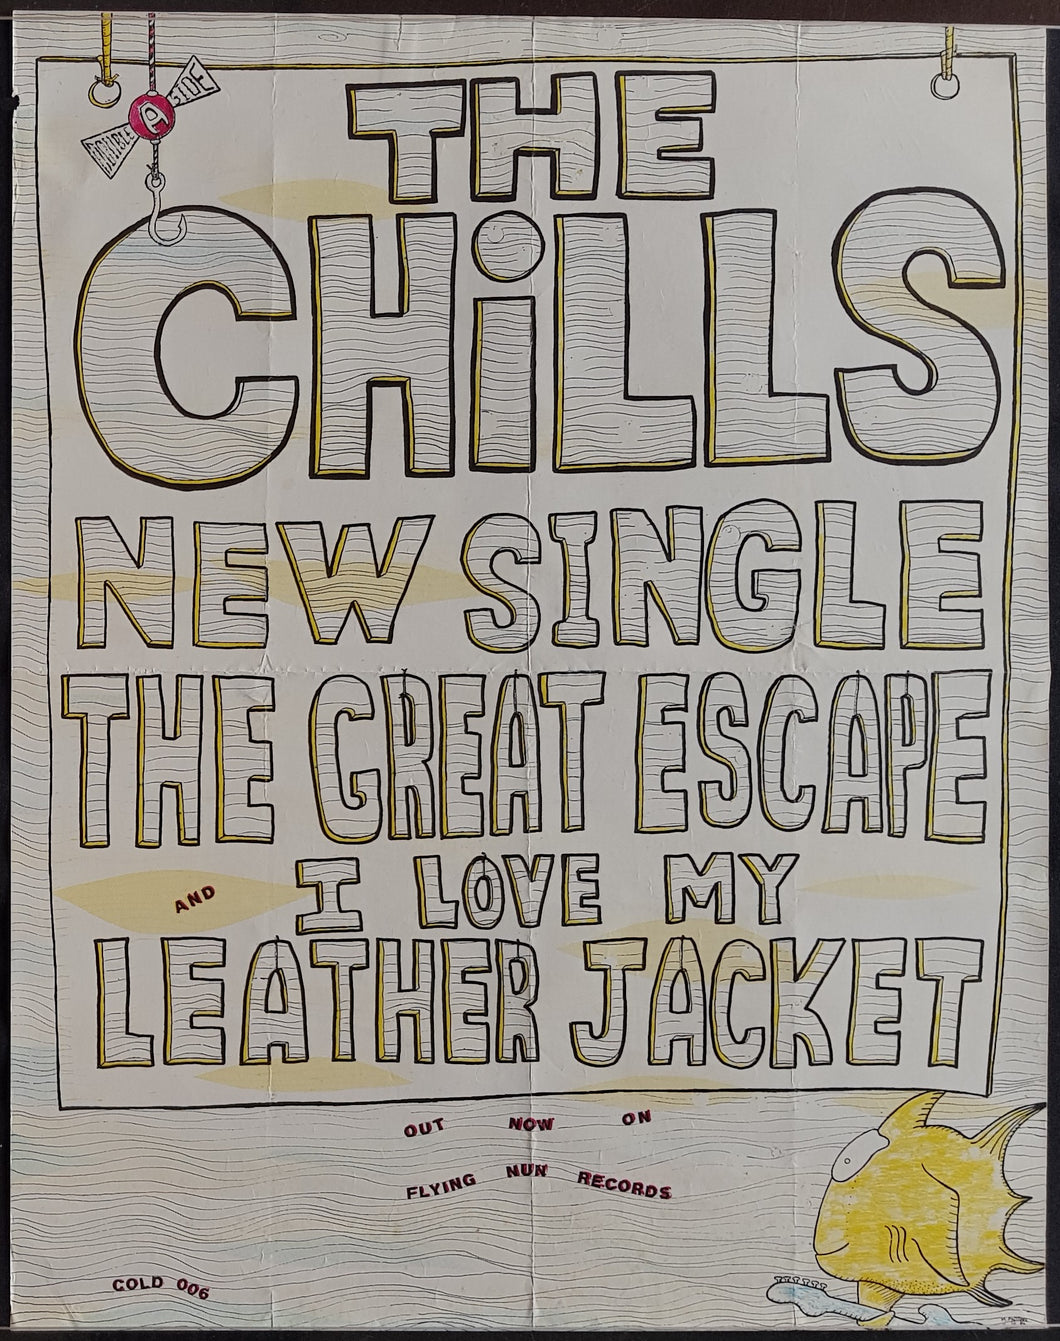 DOUBLE A SIDE
THE
CHiLLS
NEW SINGLE
THE GREAT ESCAPE
AND I LOVE MY
LEATHER JACKET
OUT NOW ON
FLYING NUN RECORDS
COLD 006